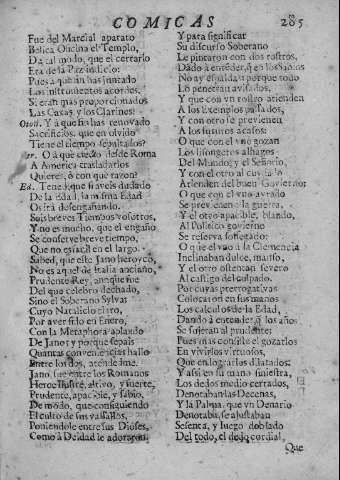 COMICAS 285
Fue del Marcial aparato
Belica Oficina el Templo,
Da tal modo, que el cerrarlo
Era de la Paz indicio:
Pues a què in han juntado
Los instrumentos acordes,
Si eran mas proporcionados
Las Caxas, y los Clarines?
Otoñ. Y à que has renovado
Sacrificios, que en olvido
Tiene el tiempo sepultados?
O à que efecto desde Roma
A America trasladarlos
Quieres, ò con que razon?
Ed. Tened, que si aveis dudado
De la Edad, la misma Edad
Osirà desengañando.
Sois breves Tiempos vosotros,
Y no es mucho, que el engaño
Se conserve breve tiempo,
Que no es facil en el largo.
Sabed, que este Jano heroyco,
No es aquel de Italia anciano,
Prudente Rey, aunque fue
Del que celebro dechado,
Sino el Soberano Sylva
Cuyo Natalicio claro,
Por aver sido en Enero,
Con la Metaphora aplaudo
De Jano; y porque sepais
Quantas conveniencias hallo
Entre los dos, atendedme.
Jano, fue entre los Romanos
Heroe ilustre, altivo, y fuerte,
Prudente, apacible, y sabio,
De modo, que consiguiendo
El culto de sus vasallos,
Poniendole entre sus Dioses,
Como à Deidad le adoraron.
Y para significar
Su discurso Soberano
Le pintaron con dos rostros,
Dãdo à entẽder, q̃ en los sabios
No ay espalda; porque todo
Lo penetran avisados,
Y que con vn rostro atienden
A los exemplos passados,
Y con otro se previenen
A los futuros acasos:
O que con el vno gozan
Los lisongeros alhagos
Del Mundo, y el Señorio,
Y con el otro al cuydado
Atienden del buen Govierno:
O que con el vno ayrado
Se previenen à la guerra,
Y el otro apacible, blando,
Al Politico govierno
Se reserva sossegado:
O que el vno à la Clemencia
Inclinaban dulce, manso,
Y el otro ostentan severo
Al castigo del culpado.
Por curias prerrogativas
Colocaron en sus manos
Los calculos de la Edad,
Dando à entender, q̃ los años
Se sujetan al prudente;
Pues mas consiste el gozarlos
En vivirlos virtuosos,
Que en lograrlos dilatados:
Y assi en su mano siniestra,
Los dedos medio cerrados,
Denotaban las Decenas,
Y la Palma, que vn Denario
Denotaba, se ajustaban
Sesenta, y luego doblado
Del todo, el dedo cordial,
Que